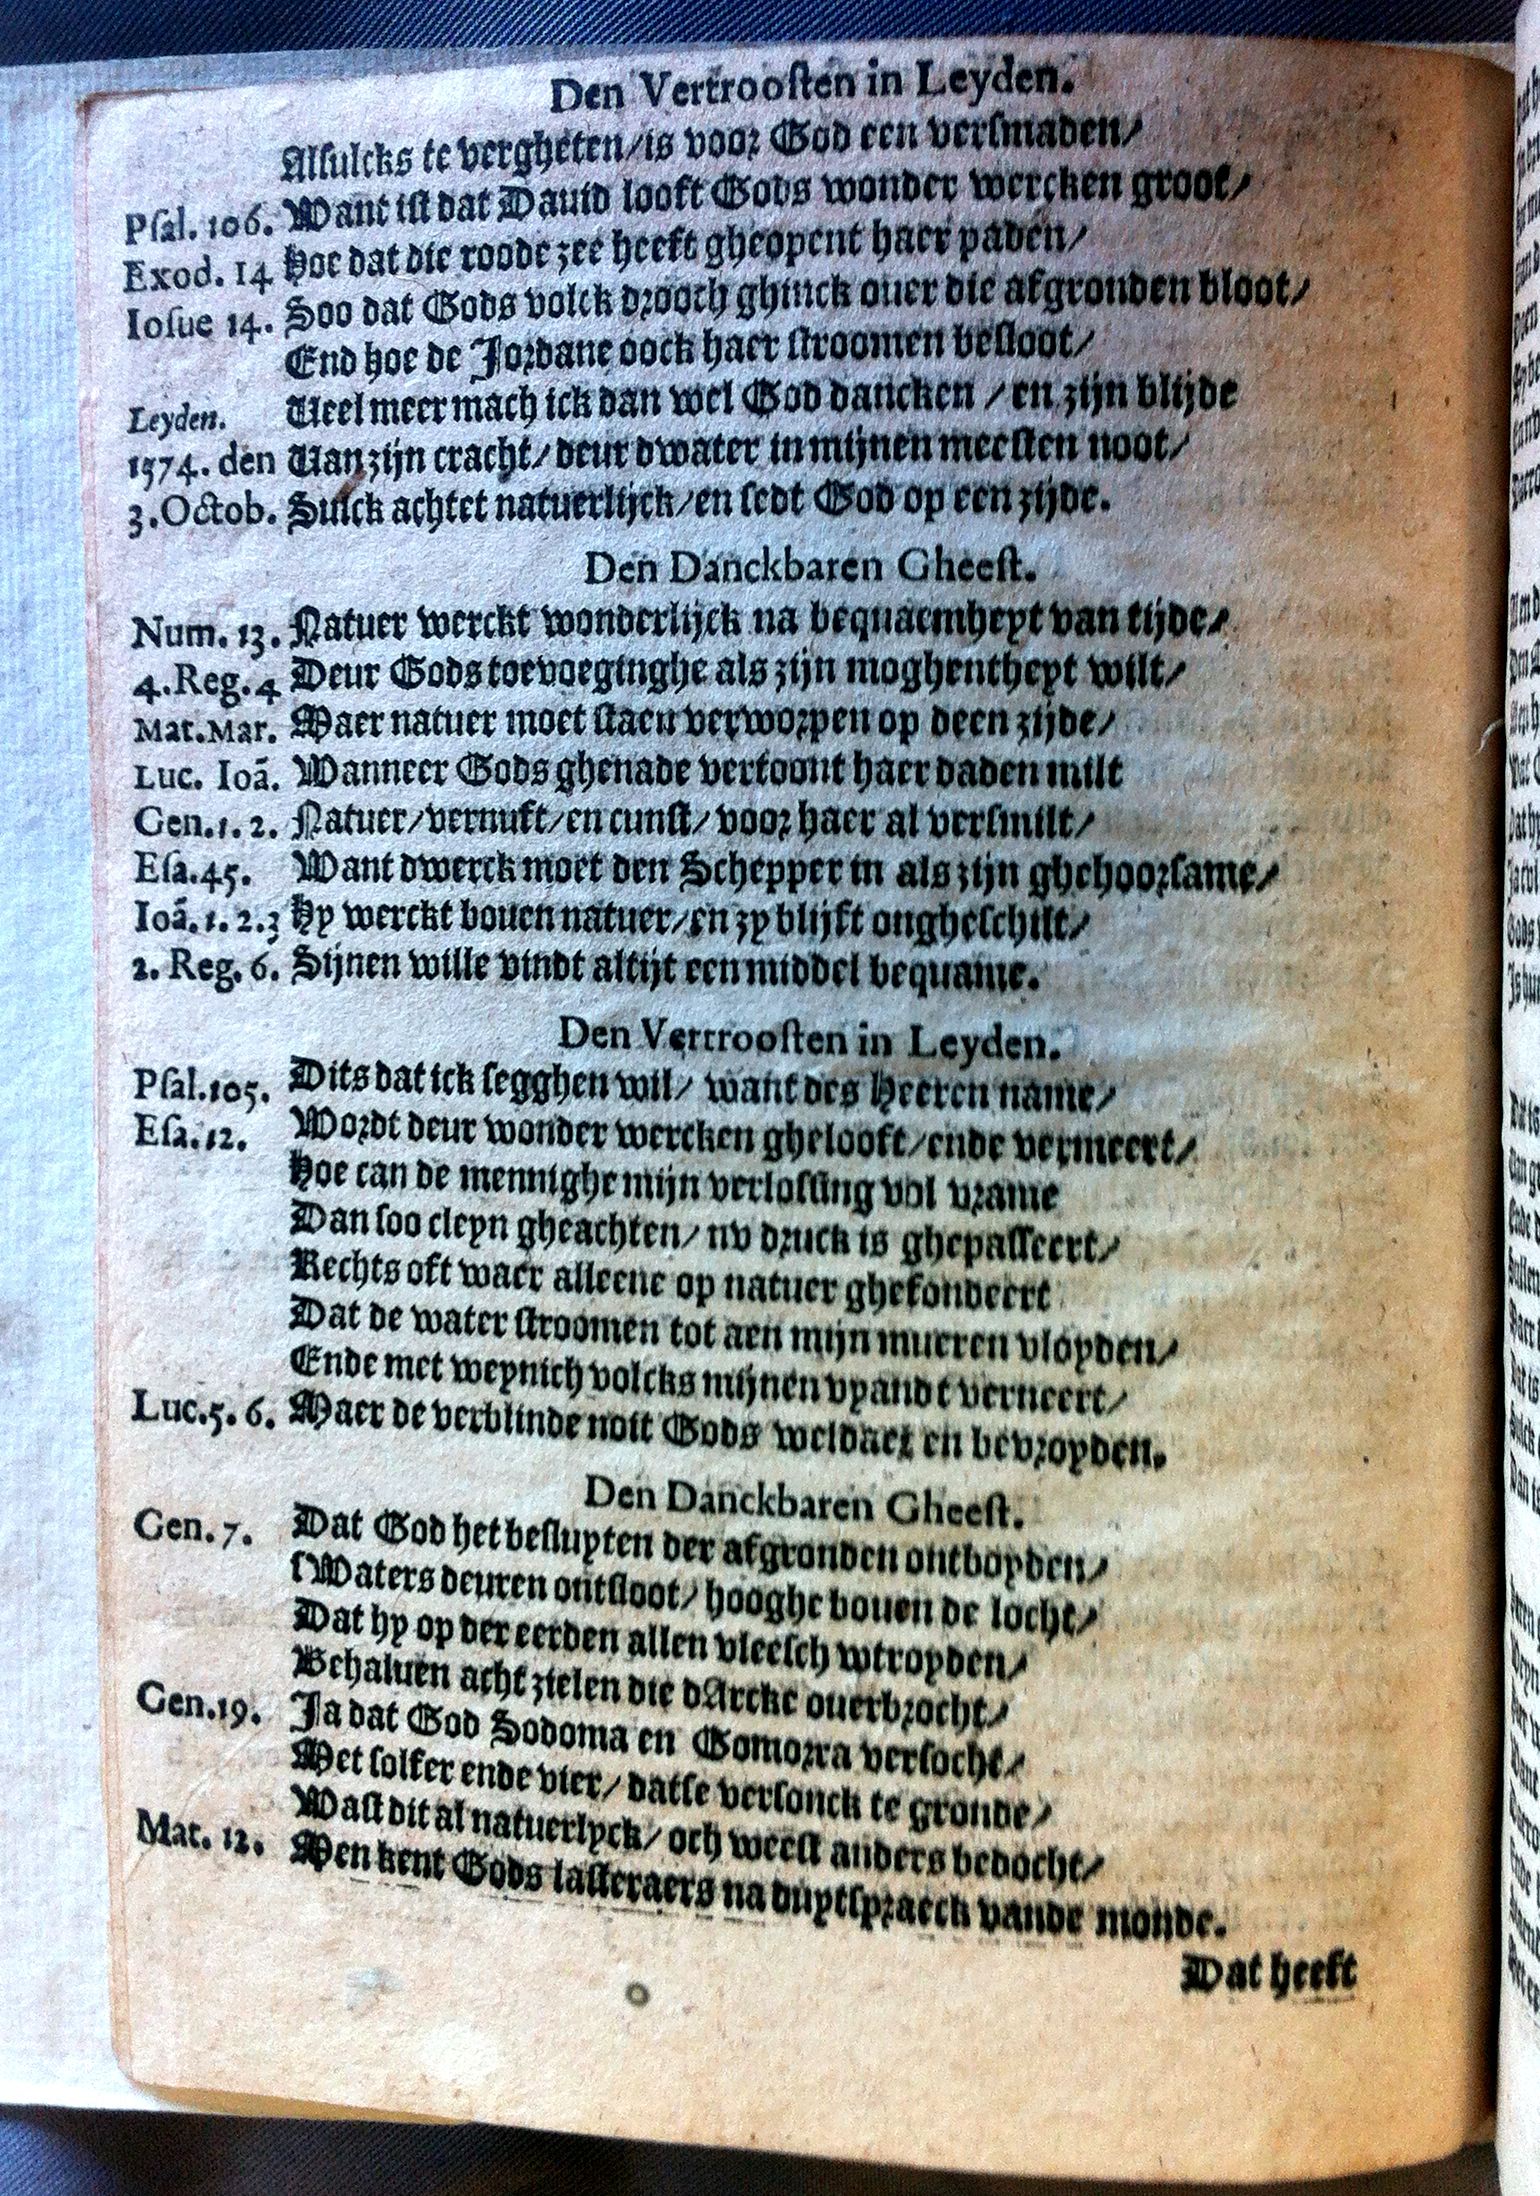 Den Vertrooſten in Leyden.
Alſulcks te vergheten/ is voor God een verſmaden/
Pſal. 106. Want iſt dat Dauid looft Gods wonder wercken groot/
Exod. 14 Hoe dat die roode zee heeft gheopent haer paden/
Ioſue 14. Soo dat Gods volck drooch ghinck ouer die afgronden bloot/
End hoe de Jordane oock haer ſtroomen beſloot/
Leyden. Ueel meer mach ick dan wel God dancken / en zijn blijde
1574. den Uan zijn cracht/ deur dwater in mijnen meeſten noot/
3. Octob. Sulck achtet natuerlijck/ en ſedt God op een zijde.
Den Danckbaren Gheeſt.
Num. 13. Natuer werckt wonderlijck na bequaemheyt van tijde/
4. Reg. 4 Deur Gods toevoeginghe als zijn moghentheyt wilt/
Mat. Mar. Maer natuer moet ſtaen verworpen op deen zijde/
Luc. Ioã. Wanneer Gods ghenade vertoont haer daden milt
Gen. 1. 2. Natuer/ vernuft/ en cunſt/ voor haer al verſmilt/
Eſa. 45. Want dwerck moet den Schepper in als zijn ghehoorſame/
Ioã. 1. 2. 3 Hy werckt bouen natuer/ en zy blijft ongheſchilt/
2. Reg. 6. Sijnen wille vindt altijt een middel bequame.
Den Vertrooſten in Leyden.
Pſal. 105. Dits dat ick ſegghen wil/ want des Heeren name/
Eſa. 12. Wordt deur wonder wercken ghelooft/ ende vermeert/
Hoe can de mennighe mijn verloſſing vol vrame
Dan ſoo cleyn gheachten/ nv druck is ghepaſſeert/
Rechts oft waer alleene op natuer ghefondeert
Dat de water ſtroomen tot aen mijn mueren vloyden/
Ende met weynich volcks mijnen vyandt verneert/
Luc. 5. 6. Maer de verblinde noit Gods weldaet en bevroyden.
Den Danckbaren Gheeſt.
Gen. 7. Dat God het beſluyten der afgronden ontboyden/
ſWaters deuren ontſloot/ hooghe bouen de locht/
Dat hy op der eerden allen vleeſch wtroyden/
Behaluen acht zielen die dArcke ouerbrocht/
Gen. 19. Ja dat God Sodoma en Gomorra verſocht/
Met ſolfer ende vier/ datſe verſonck te gronde/
Waſt dit al natuerlyck/ och weeſt anders bedocht/
Mat. 12. Men kent Gods laſteraers na duytſpraeck vande monde.
Dat heeft